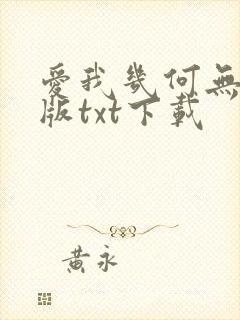 愛我幾何無
版txt下載
黃永